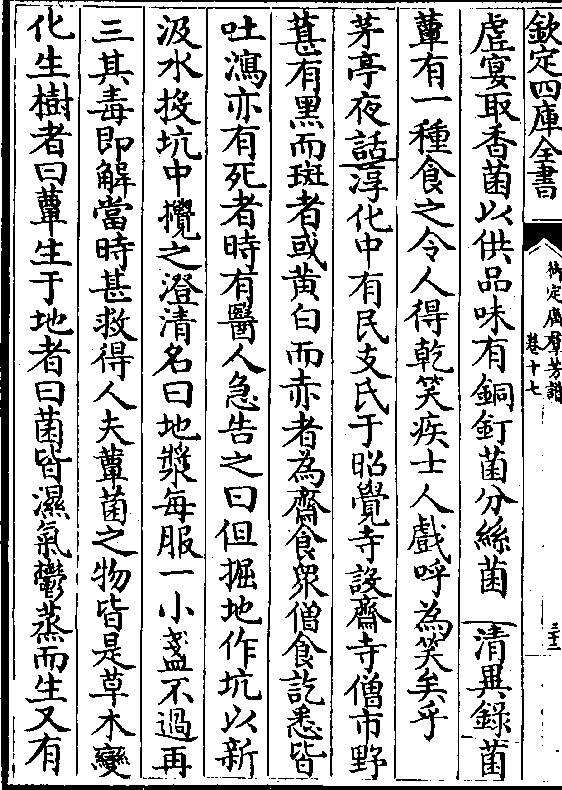 欽定四庫全書
御定廣羣芳譜
卷十七
三十三
虛宴取香菌以供品味有銅釘菌分絲菌　清異錄菌
蕈有一種食之令人得乾笑疾士人戲呼為笑矣乎
茅亭夜話淳化中有民支氏于昭覺寺設齋寺僧市野
葚有黑而斑者或黄白而赤者為齋食衆僧食訖悉皆
吐瀉亦有死者時有醫人急告之曰但掘地作坑以新
汲水投坑中攪之澄清名曰地漿每服一小盞不過再
三其毒即解當時甚救得人夫蕈菌之物皆是草木變
化生樹者曰蕈生于地者曰菌皆濕氣鬱蒸而生又有